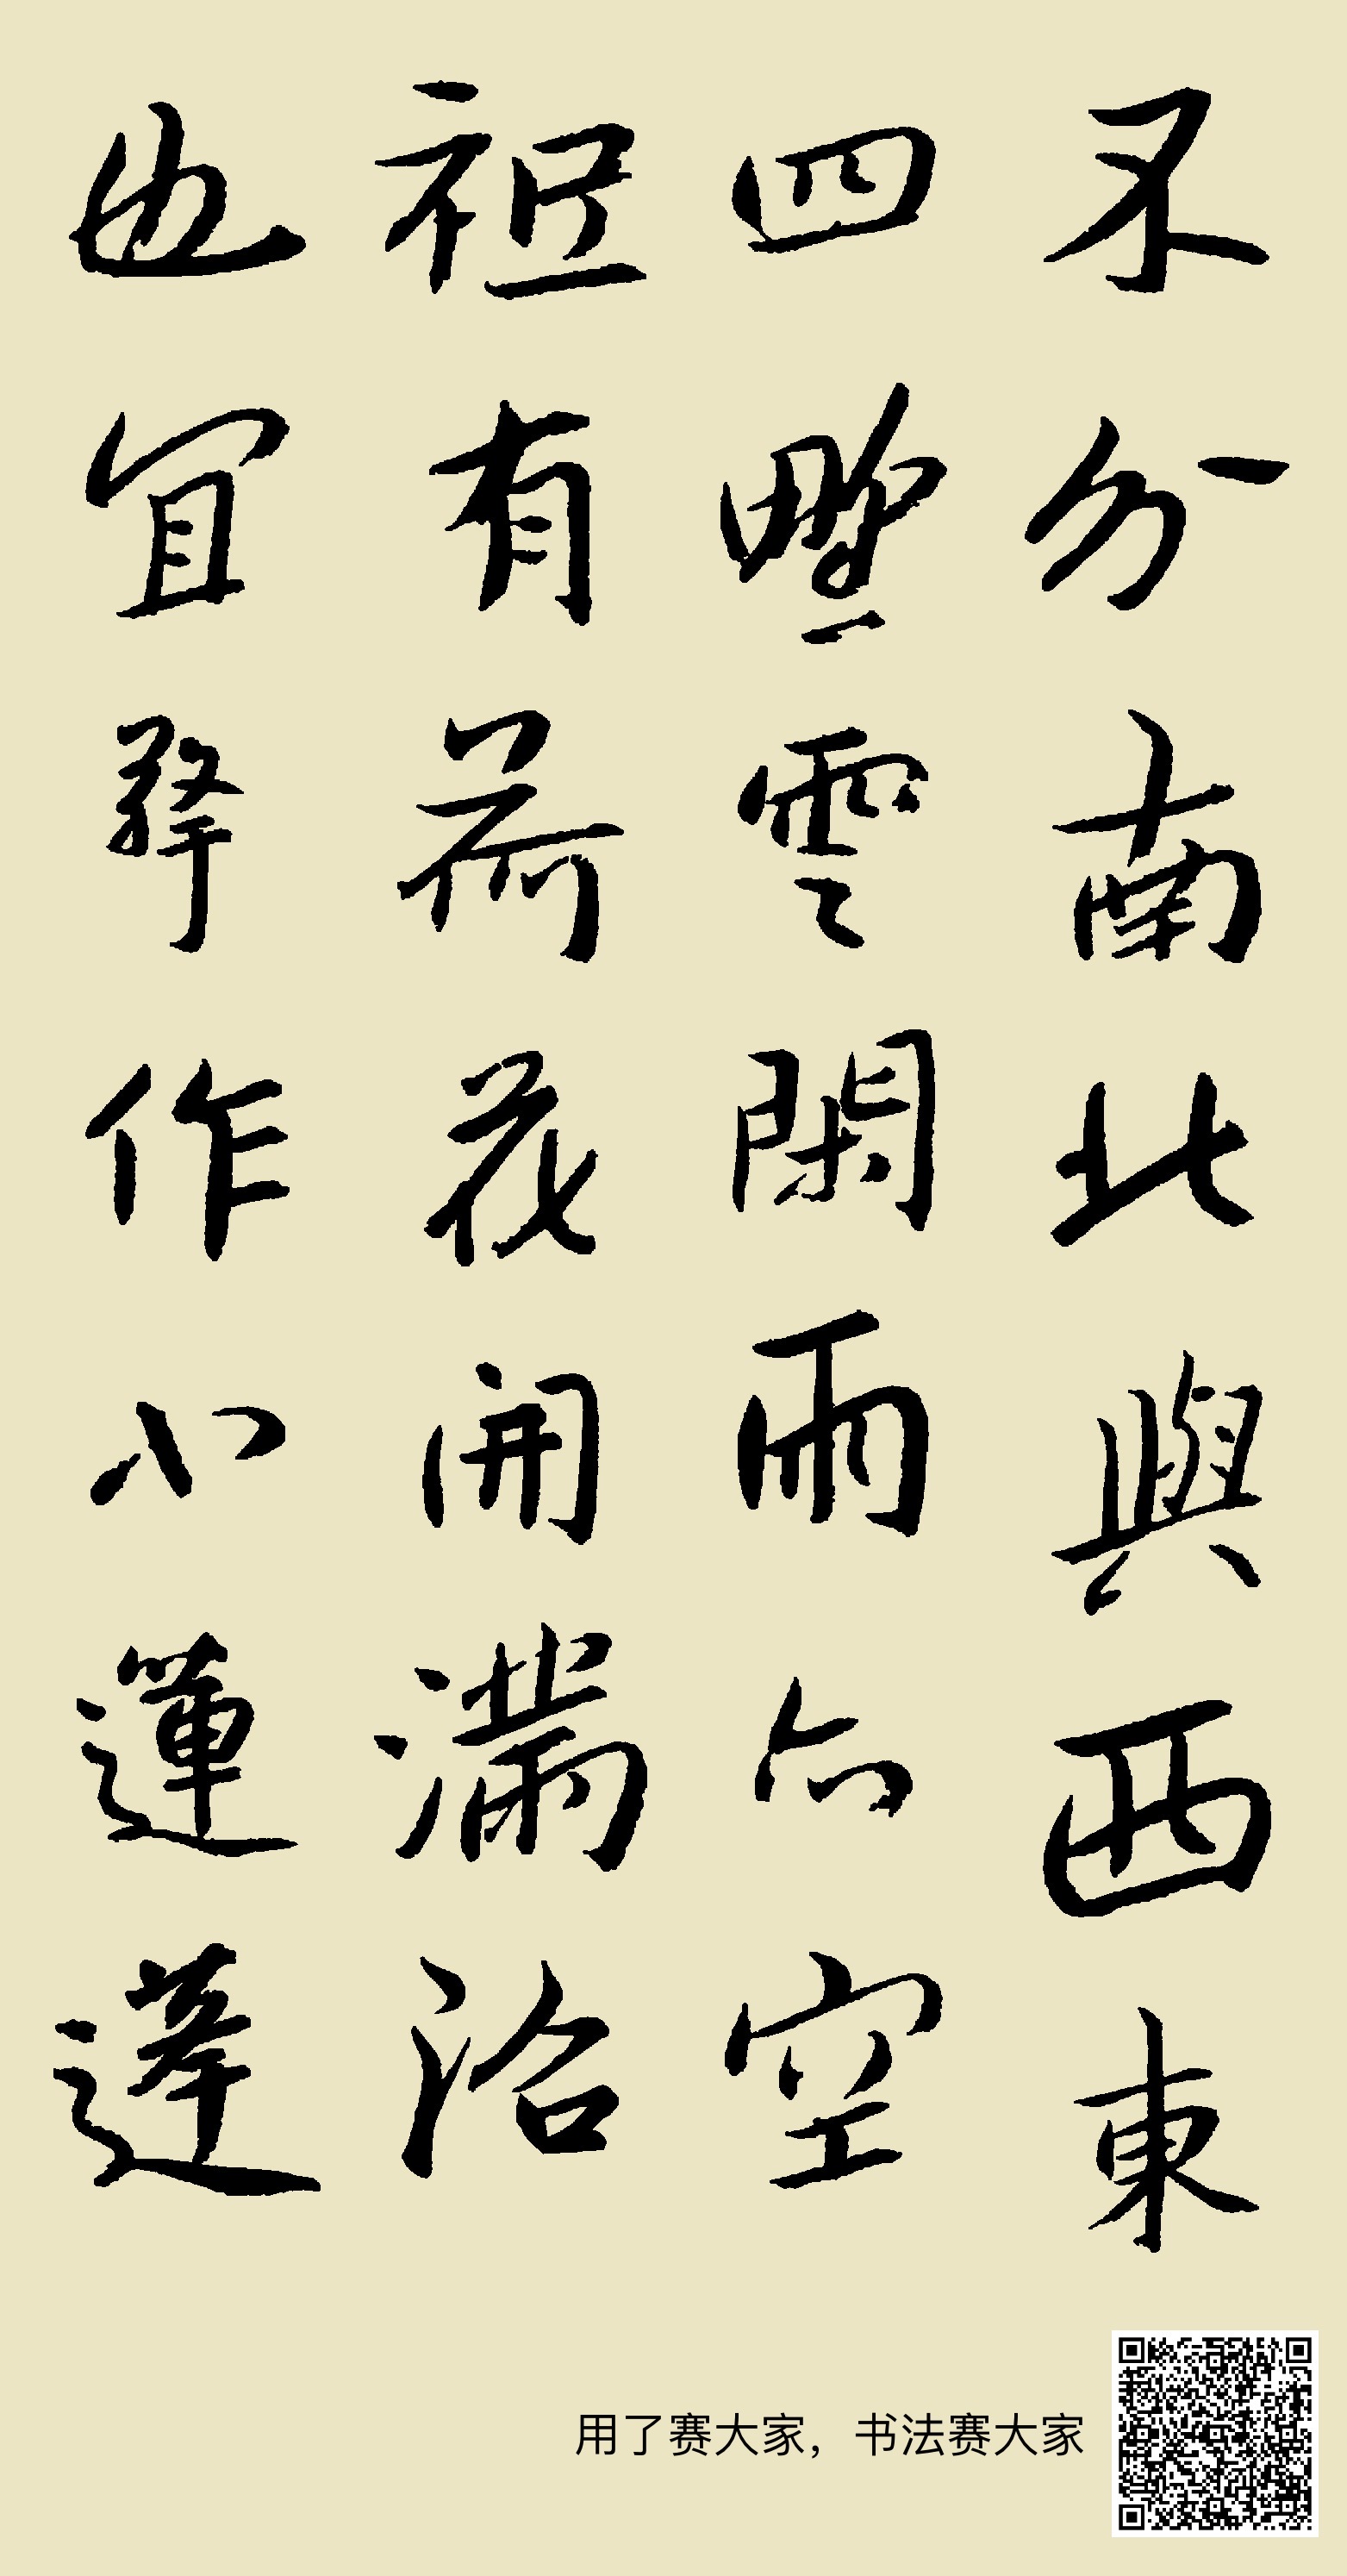 不分南北與西東
四野雲閑雨六空
祗有荷花開滿沼
也宜移作小蓮蓬
用了赛大家，书法赛大家